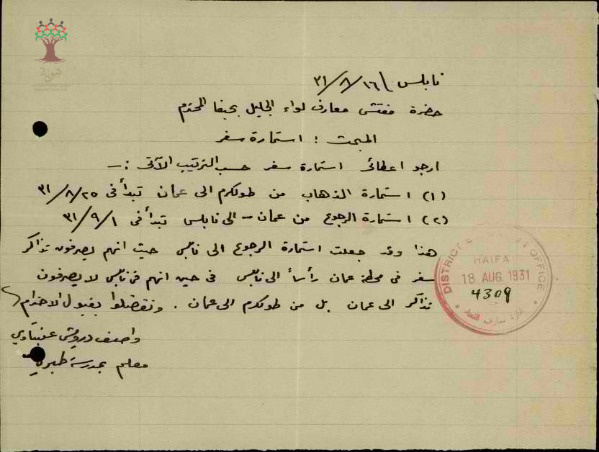 نابلس ١٦/٨/٣١
حضرة مفتش معارف لواء الجليل بحيفا المحترم
المبحث : استمارة سفر
ارجو اعطائي استمارة سفر حسب الترتيب الآتي :ـ
(١) استمارة الذهاب من طولكرم الى عمان تبدأ في ٢٥/٨/٣١
(٢) استمارة الرجوع من عمان – الى نابلس تبدأ في ١/٩/٣١
هذا وقد جعلت استمارة الرجوع الى نابلس حيث انهم يصرفون تذاكر
سفر في محطة عمان رأساً الى نابلس في حين انهم في نابلس لا يصرفون
تذاكر الى عمان بل من طولكرم الى عمان . وتفضلوا بقبول الاحترام
واصف درويش عنبتاوي
معلم بمدرسة طبريا
DISTRICT OFFICE
HAIFA
18 AUG 1931
4309